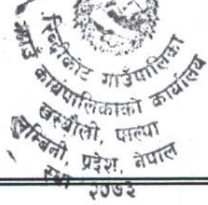 रिब्दीकोट गाउँपालिका
गाउँ कार्यपालिकाको कार्यालय
खस्यौली, पाल्पा
लुम्बिनी, प्रदेश, नेपाल
२०७३